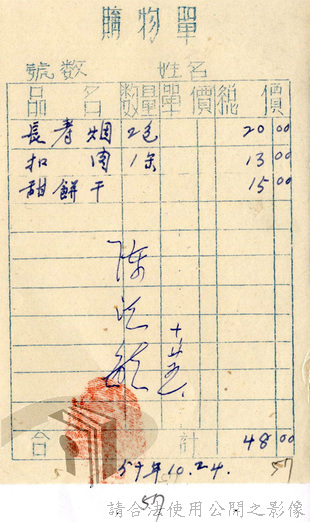 購物單
號數 姓名
品名 數量 單價 總價
長壽烟 2包 20 00
扣肉 1 13 00
甜餅干 15 00
陳
合計 48 00
59年10.24.
57
57
請合法使用公開之影像